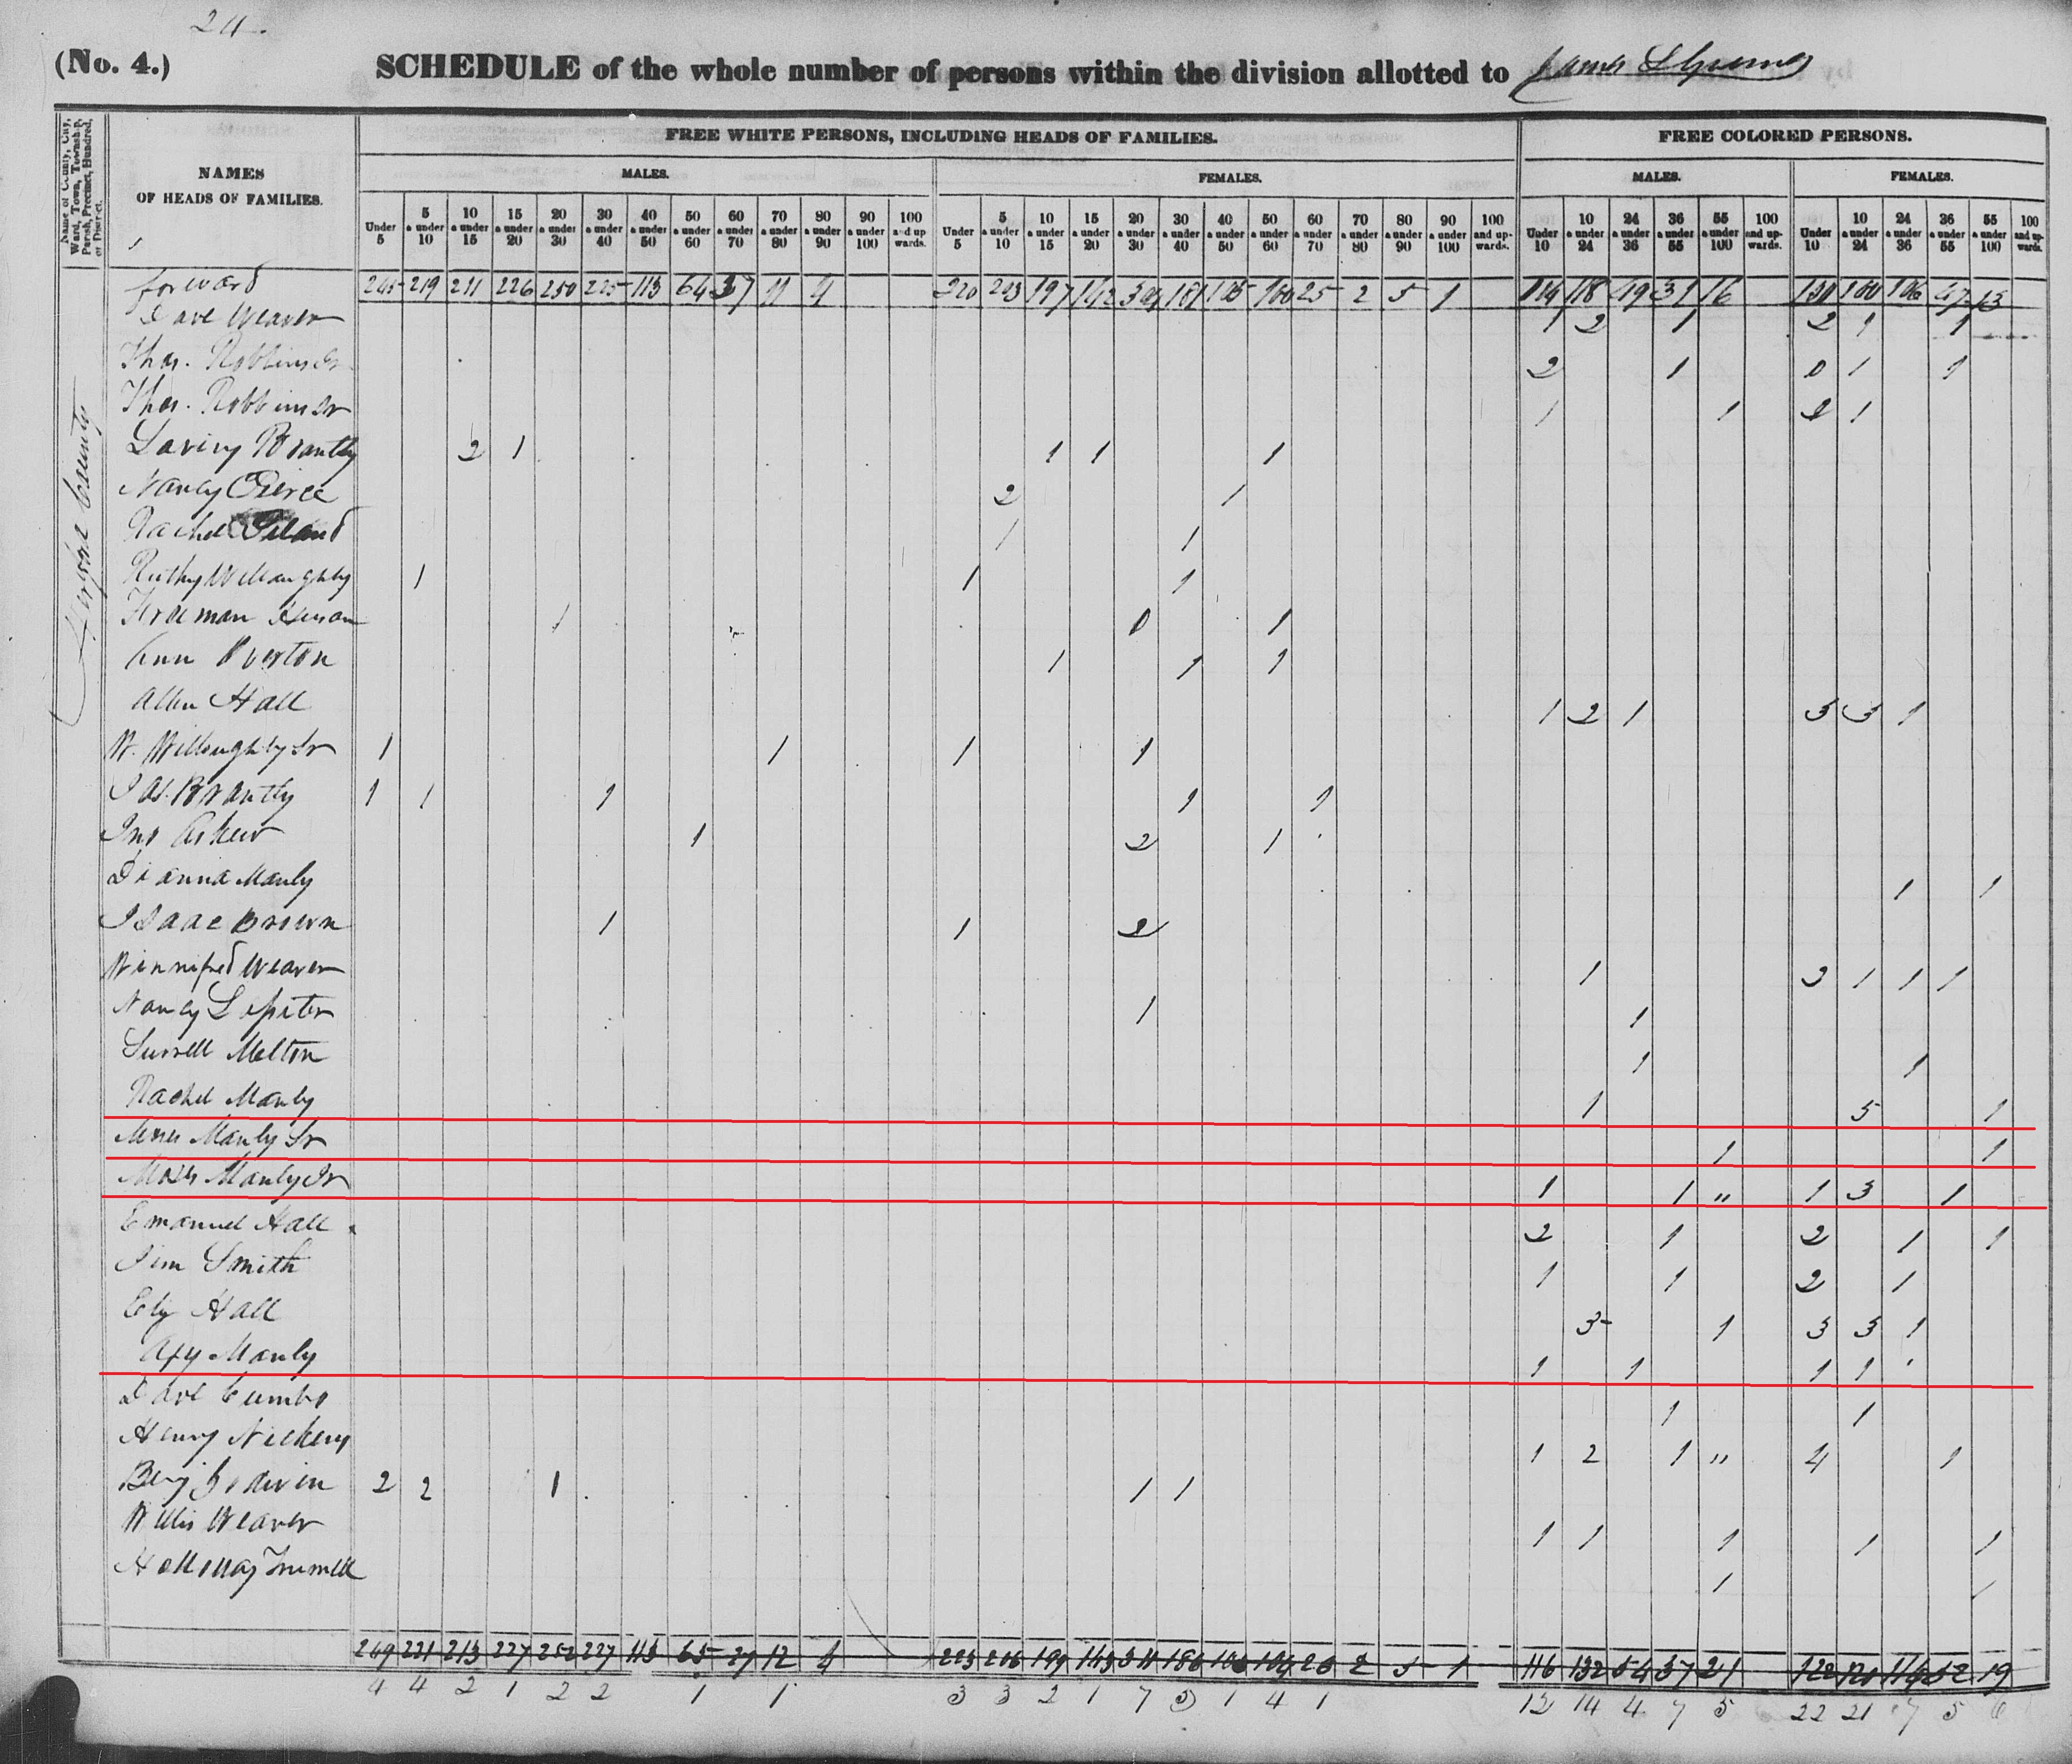 24.
(No. 4.) SCHEDULE of the whole number of persons within the division allotted to James S
Name of County, City, Ward, Town, Township, Parish, Precinct, Hundred, or District.
NAMES OF HEADS OF FAMILIES.
FREE WHITE PERSONS, INCLUDING HEADS OF FAMILIES.
FREE COLORED PERSONS.
MALES. FEMALES. MALES. FEMALES.
Under 5 | 5 & under 10 | 10 & under 15 | 15 & under 20 | 20 & under 30 | 30 & under 40 | 40 & under 50 | 50 & under 60 | 60 & under 70 | 70 & under 80 | 80 & under 90 | 90 & under 100 | 100 and upwards. | Under 5 | 5 & under 10 | 10 & under 15 | 15 & under 20 | 20 & under 30 | 30 & under 40 | 40 & under 50 | 50 & under 60 | 60 & under 70 | 70 & under 80 | 80 & under 90 | 90 & under 100 | 100 and upwards. | Under 10 | 10 & under 24 | 24 & under 36 | 36 & under 55 | 55 & under 100 | 100 and upwards. | Under 10 | 10 & under 24 | 24 & under 36 | 36 & under 55 | 55 & under 100 | 100 and upwards.
Hertford County
forward 245 219 211 226 250 225 113 64 37 11 4 220 203 197 142 181 105 100 25 2 5 1 118 49 31 16 100 106 47 13
Dave Weaver 1 2 1 2 1 1
Thos. Robbins Sr 2 1 0 1 1
Thos. Robbins Jr 1 1 2 1
Laviny Brantly 2 1 1 1 1
Nancy Pierce 2 1
Rachel 1 1
Ruthy Willoughby 1 1 1
Freeman 1 0 1
Ann Overton 1 1 1
Allen Hall 1 2 1 3 3 1
W. Willoughby Sr 1 1 1 1
Jas. Brantly 1 1 1 1 1
Jno Askew 1 2 1
Dianna Manly 1 1
Isaac Brown 1 1 2
Winnifred Weaver 1 3 1 1 1
Nancy 1 1
Melton 1 1
Rachel Manly 1 5 1
Moses Manly Sr 1 1
Moses Manly Jr 1 1 " 1 3 1
Emanuel Hall 2 1 2 1 1
Jim Smith 1 1 2 1
Ely Hall 3 1 3 3 1
Axy Manly 1 1 1 1
Dave Cumbo 1 1
Henry 1 2 1 " 4 1
Benj Godwin 2 2 1 1 1
Willis Weaver 1 1 1 1 1
1 1
249 221 213 227 252 227 113 65 37 12 4 223 206 199 143 311 186 106 104 26 2 5 1 116 132 54 37 21 122 121 52 19
4 4 2 1 2 2 1 1 3 3 2 1 7 5 1 4 1 12 14 4 7 5 22 21 7 5 6